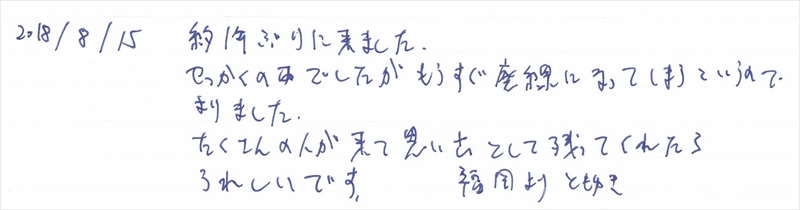 2018/8/15 約1年ぶりに来ました.
せっかくの雨でしたがもうすぐ廃線になってしまうというので
まりました.
たくさんの人が来て思い出として残ってくれたら
うれしいです. 福岡より ともゆき